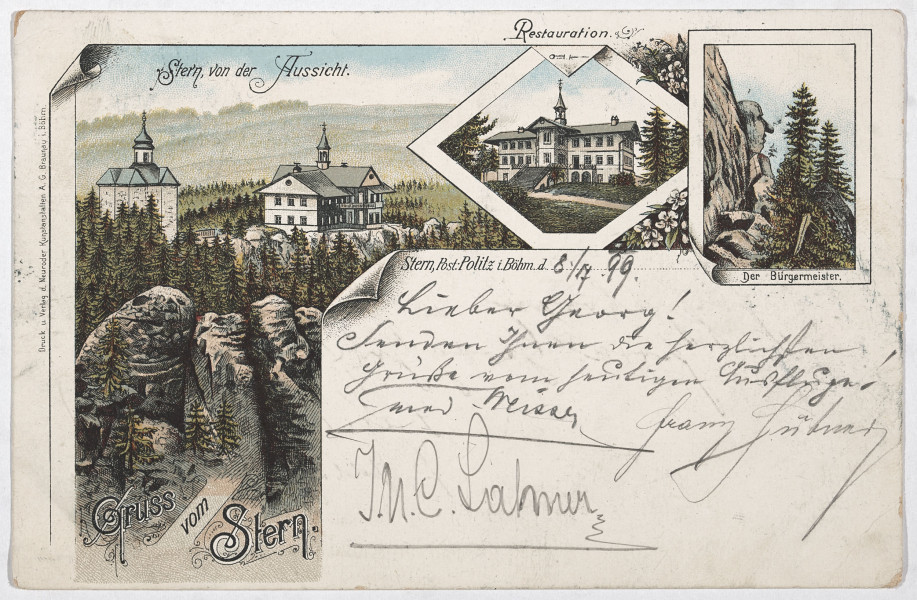 Restauration.
Stern, von der Aussicht.
Druck u. Verlag d. Neuroder Kunstanstalten A. G. Braunau i. Böhm.
Der Bürgermeister.
Stern, Post: Politz i. Böhm. d. 8/7 99.
Lieber Georg!
Senden Ihnen die herzlichsten
Grüße vom heutigen Ausfluge!
Franz Hübner
Gruss
vom
Stern.